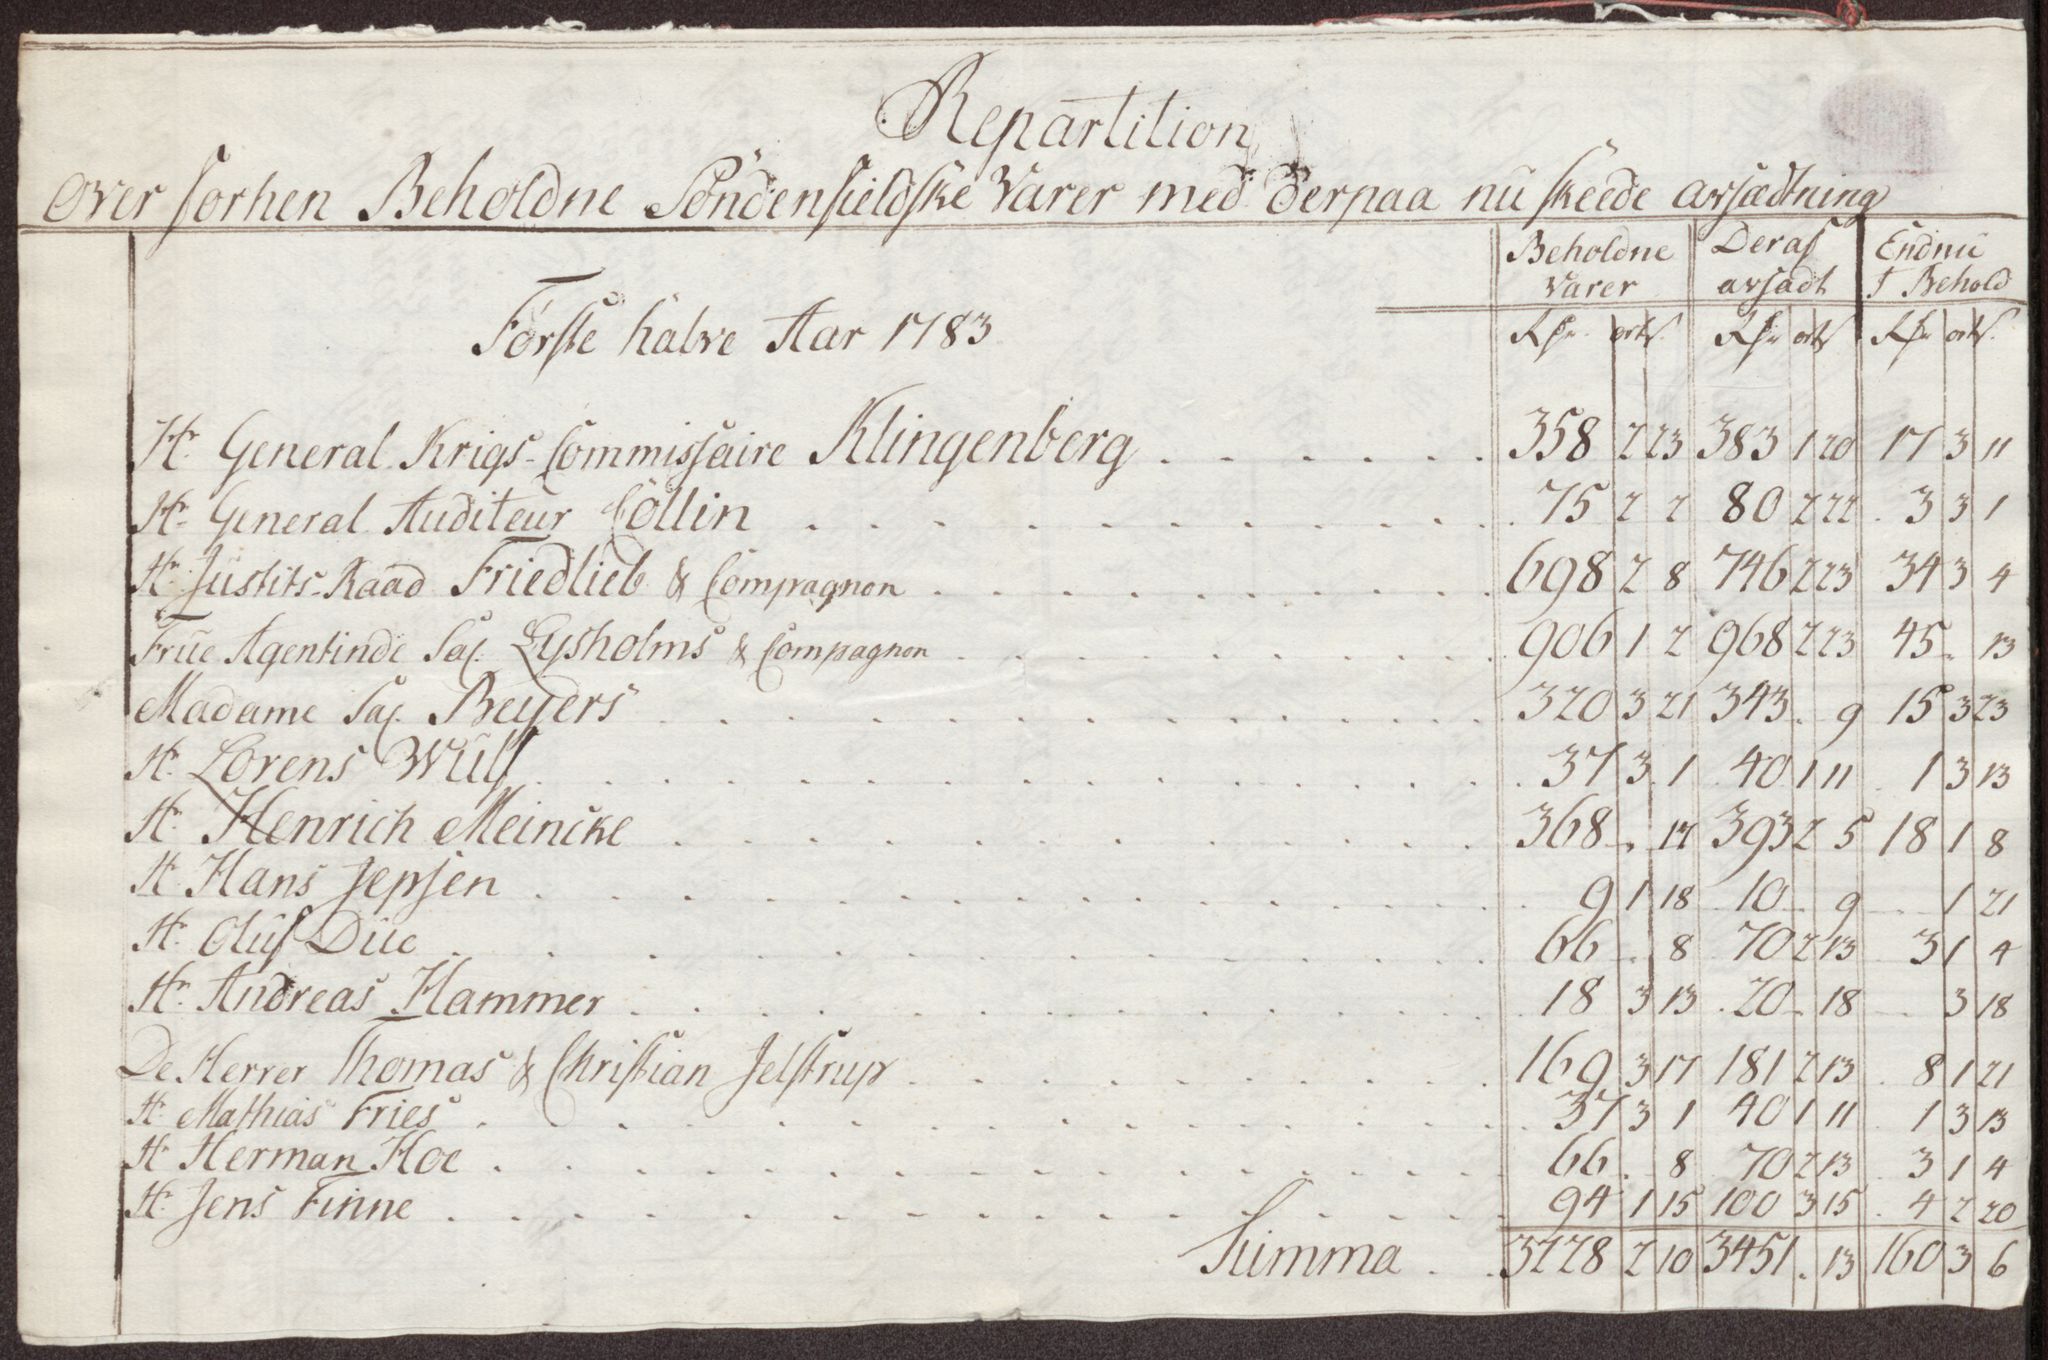 Repartition
over forhen Beholdne Söndenfieldske Varer med derpaa nu skeede avsædtning
Beholdne Varer | Deraf avsadt | Endnu I Behold
Förste halve Aar 1783
Rdr ort s | Rdr ort s | Rdr ort s
Hr General Krigs-Commissaire Klingenberg . . . . . . 358 2 23 383 1 20 17 3 11
Hr General Auditeur Collin . . . . . . 75 2 2 80 2 22 3 3 1
Hr Justits-Raad Friedlieb & Compagnon . . . . . . 698 2 8 746 2 23 34 3 4
Frue Agentinde Sal. Lysholms & Compagnon . . . . . . 906 1 2 968 2 23 45 . 13
Madame Sal. Beyers . . . . . . 320 3 21 343 . 9 15 3 23
Hr Lorens Wulf . . . . . . 37 3 1 40 1 11 1 3 13
Hr Henrich Meincke . . . . . . 368 . 17 393 2 5 18 1 8
Hr Hans Jepsen . . . . . . 9 1 18 10 . 9 . 1 21
Hr Oluf Due . . . . . . 66 . 8 70 2 13 3 1 4
Hr Andreas Hammer . . . . . . 18 3 13 20 . 18 . 3 18
De Herrer Thomas & Christian Jelstrup . . . . . . 169 3 17 181 2 13 8 1 21
Hr Mathias Fries . . . . . . 37 3 1 40 1 11 1 3 13
Hr Herman Hoe . . . . . . 66 . 8 70 2 13 3 1 4
Hr Jens Finne . . . . . . 94 1 15 100 3 15 4 2 20
Summa . . 3228 2 10 3451 . 13 160 3 6